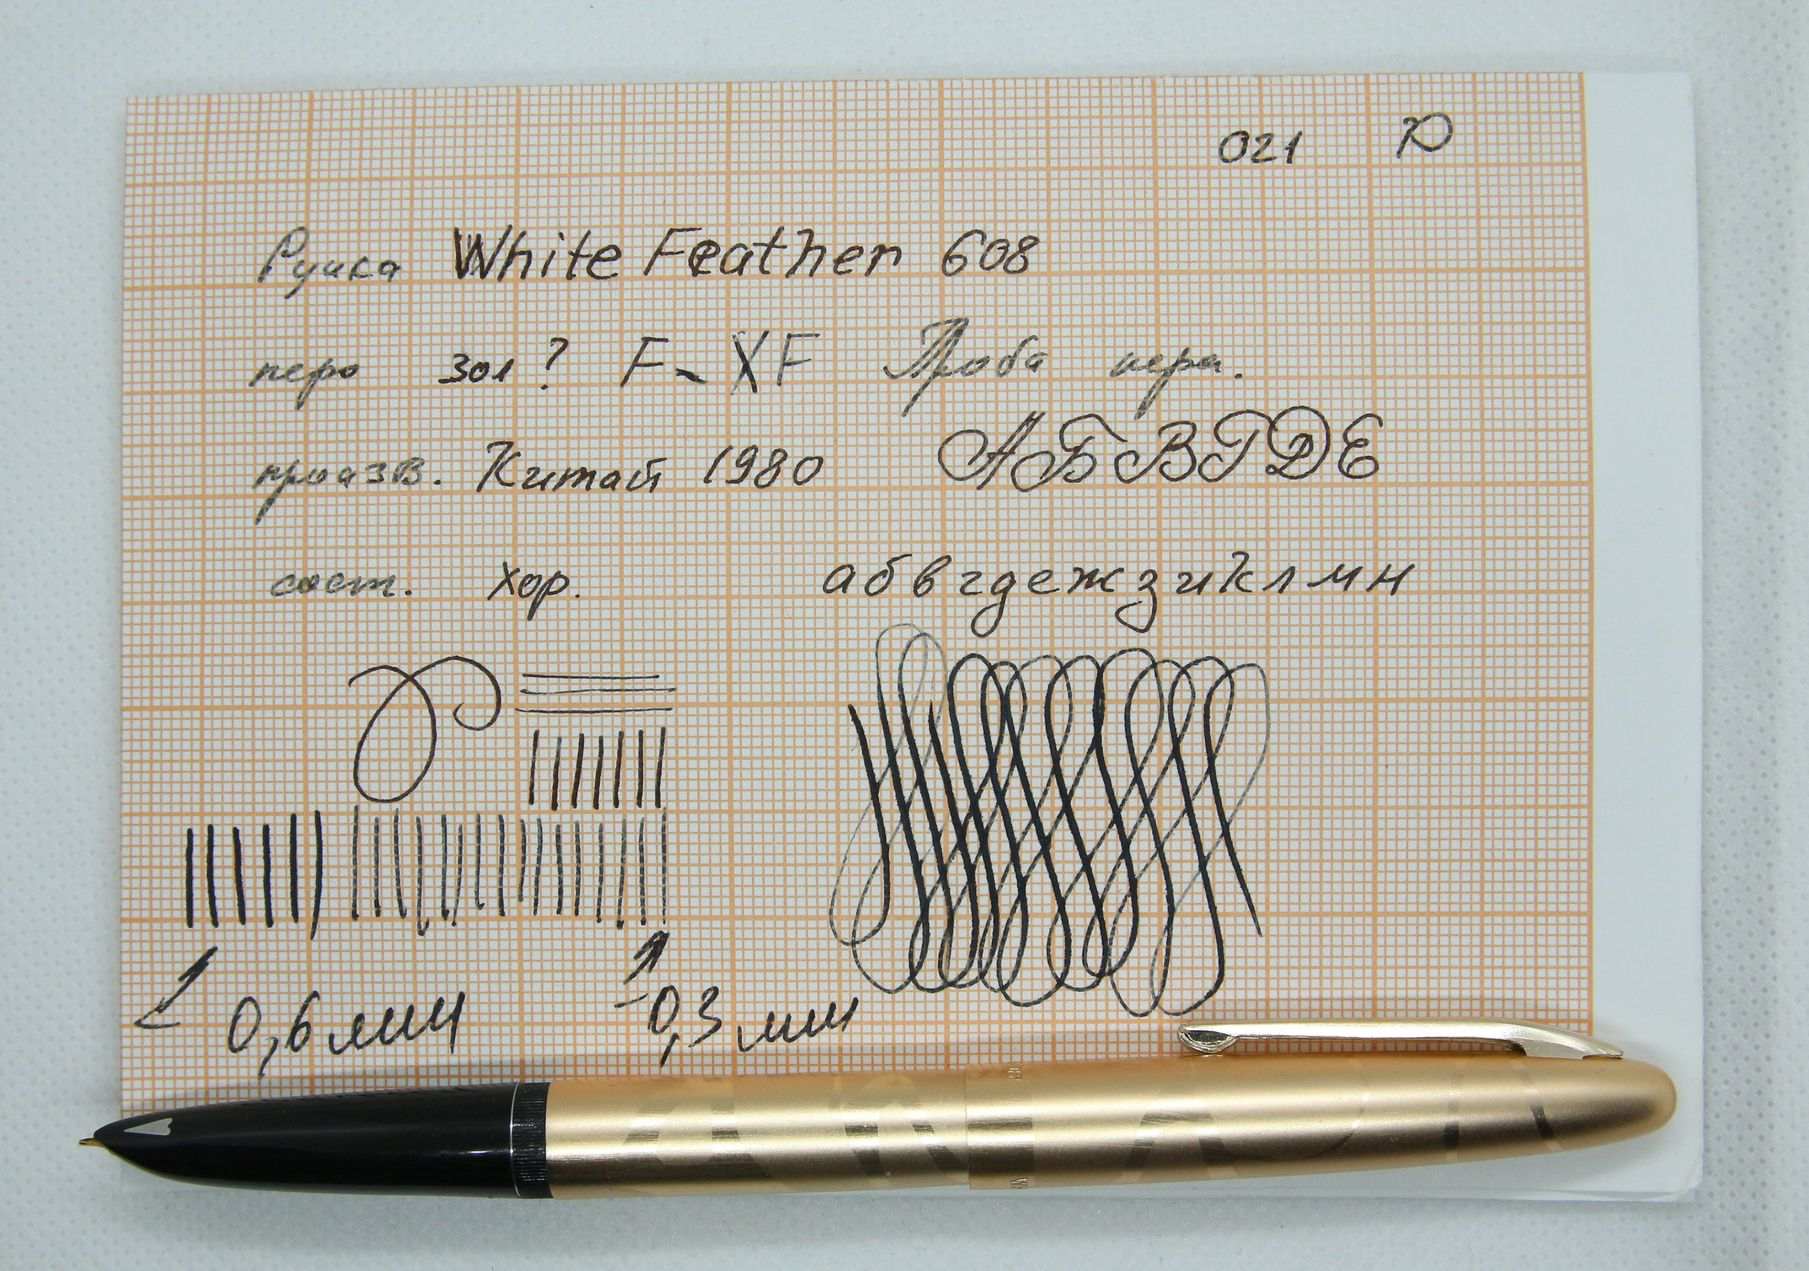 021 Ю
Ручка White Feather 608
перо зол? F-XF Проба пера.
произв. Китай 1980 АБВГДЕ
сост. хор. абвгдежзиклмн
0,6 мм 0,3 мм